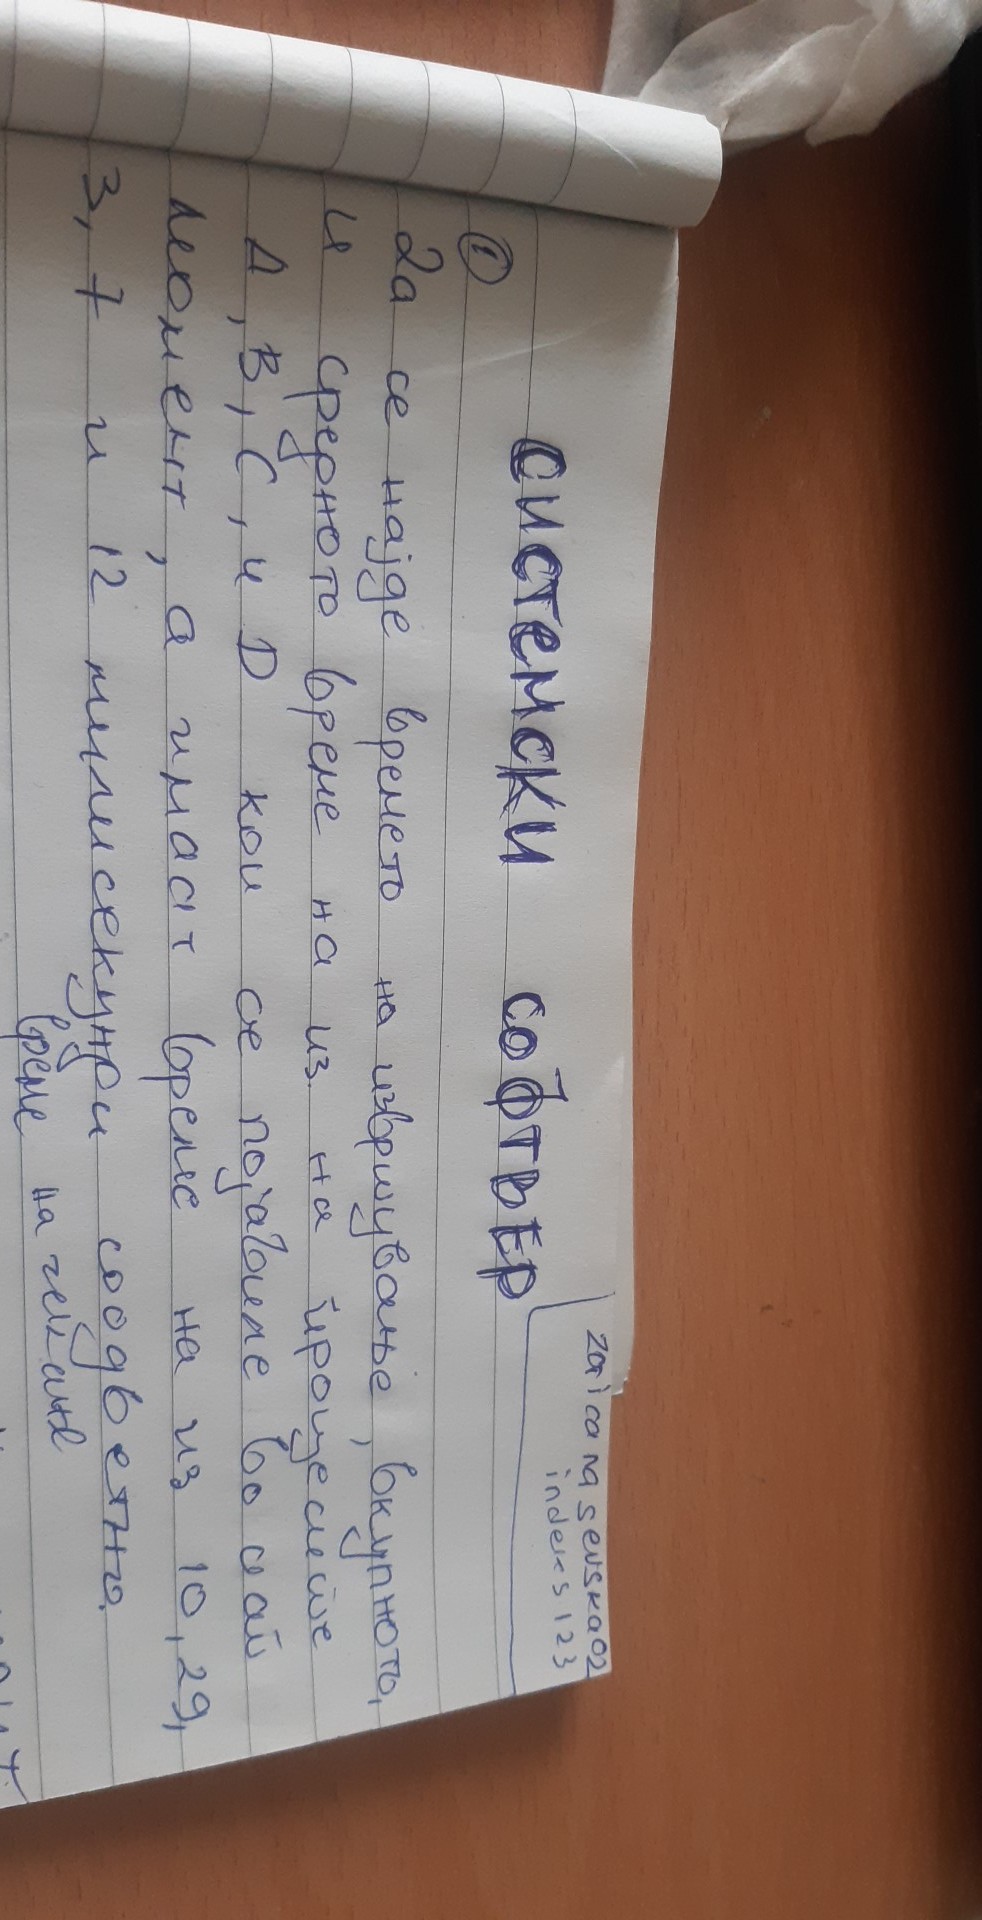 zorica nasevska02
indeks 123
СИСТЕМСКИ СОФТВЕР
1
Да се најде времето на извршување, вкупното,
и средното време на из. на процесите
A, B, C, и D кои се појавиле во
момент, а имаат време на из 10, 29,
3, 7 и 12 милисекунди соодветно.
време на чекање